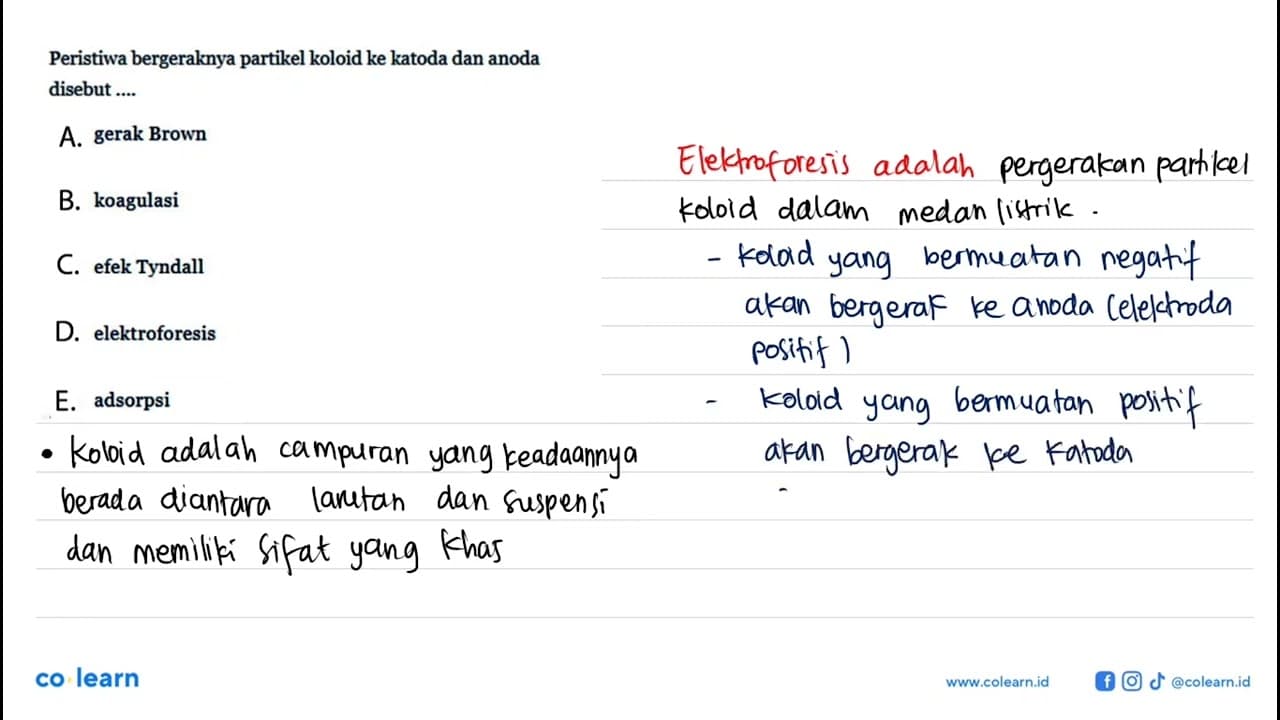 Peristiwa bergeraknya partikel koloid ke katoda dan anoda
disebut ....
A. gerak Brown
B. koagulasi
C. efek Tyndall
D. elektroforesis
E. adsorpsi
• koloid adalah campuran yang keadaannya
berada diantara larutan dan suspensi
dan memiliki sifat yang khas
Elektroforesis adalah pergerakan partikel
koloid dalam medan listrik.
- koloid yang bermuatan negatif
akan bergerak ke anoda (elektroda
positif)
- koloid yang bermuatan positif
akan bergerak ke katoda
-
co learn
www.colearn.id
@colearn.id